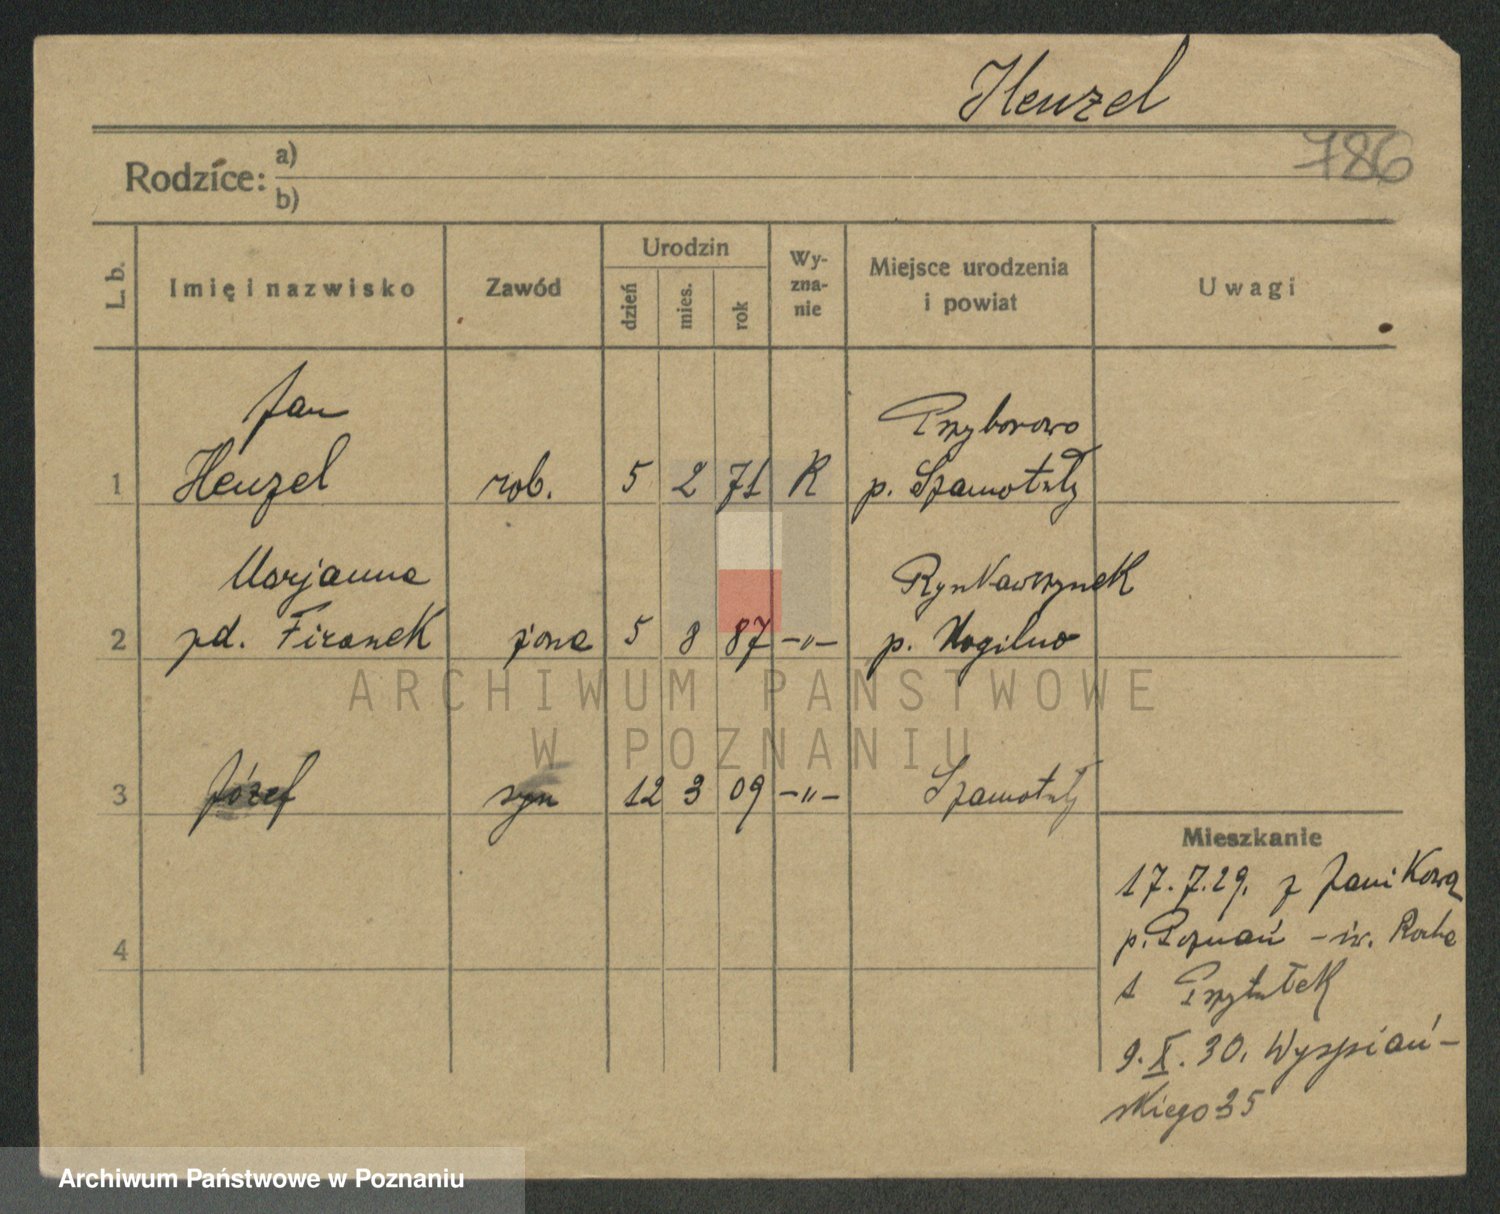 Henzel
786
Rodzice: a)
b)
L. b. Imię i nazwisko Zawód Urodzin dzień mies. rok Wyznanie Miejsce urodzenia i powiat Uwagi
Jan Przyborowo
1 Henzel rob. 5 2 71 R p. Szamotuły
Marjanna
2 zd. Firanek żona 5 8 87 -„- p. Mogilno
ARCHIWUM PAŃSTWOWE
W POZNANIU
3 Józef syn 12 3 09 -„- Szamotuły
Mieszkanie
17.7.29. z Janikowa
4
p. Poznań - św. Rocha
1 Przytułek
9.X.30. Wyspiań-
skiego 35
Archiwum Państwowe w Poznaniu